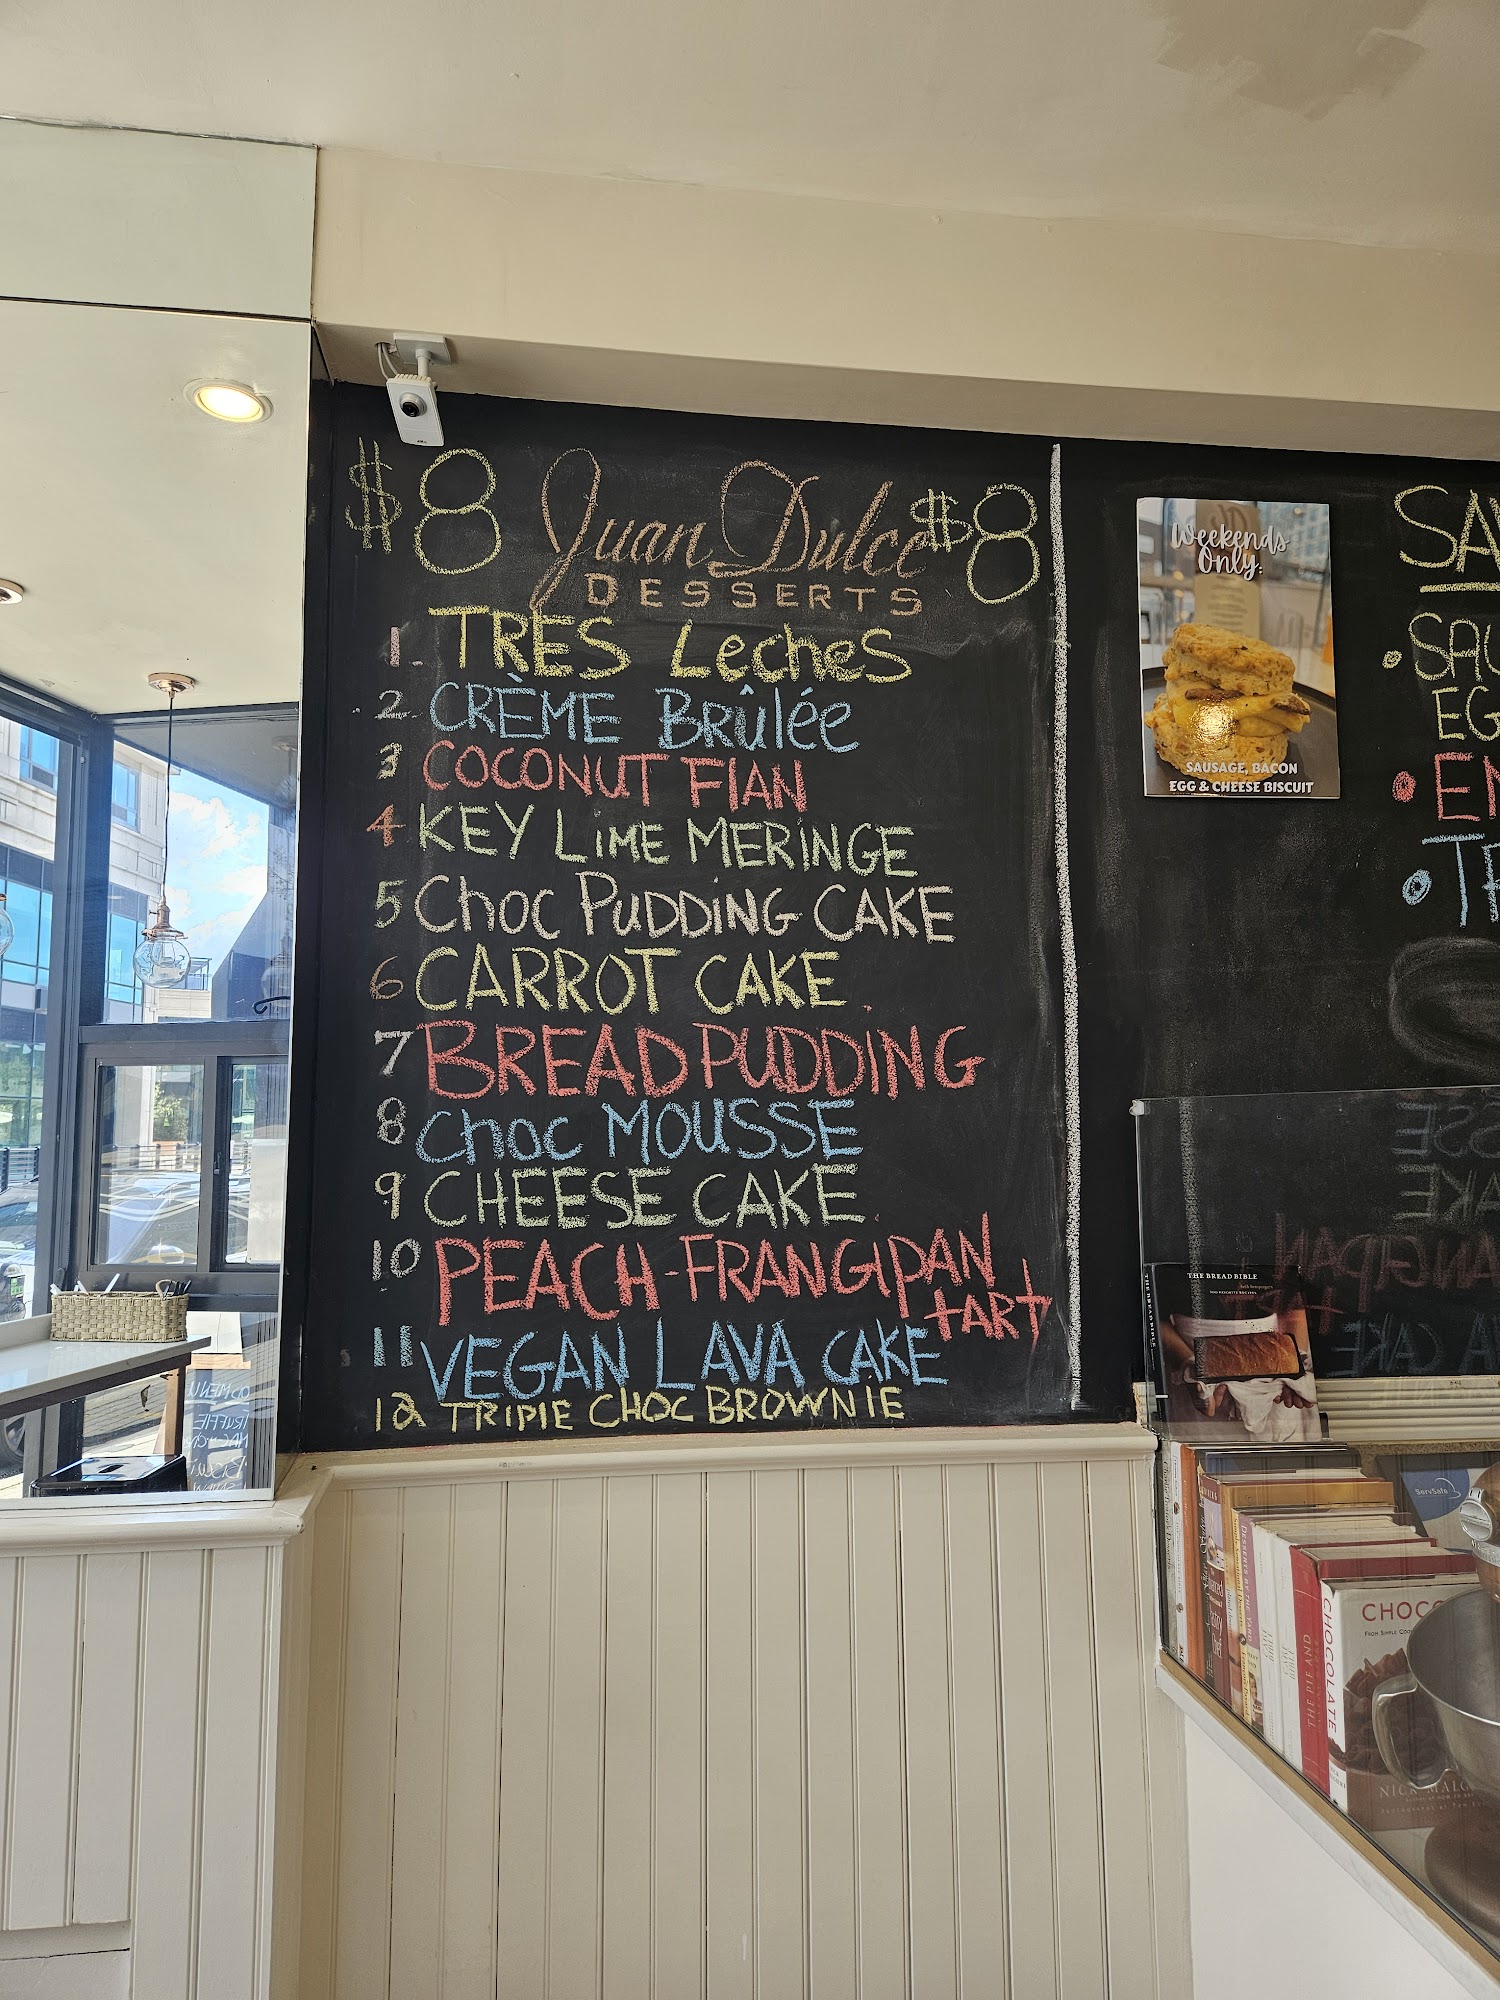 $8 Juan Dulce $8
DESSERTS
1. TRES LecheS
2. CRÈME Brûlée
3 COCONUT FlAN
4 KEY LiME MERINGE
5 Choc PUDDiNG CAKE
6 CARROT CAKE
7 BREAD PUDDING
8 Choc MOUSSE
9 CHEESE CAKE
10 PEACH-FRANGIPAN
tART
11 VEGAN LAVA CAKE
12 TRIPlE CHOC BROWNIE
Weekends
Only:
SAUSAGE, BACON
EGG & CHEESE BISCUIT
SAV
• SAU
EG
• EM
THE BREAD BIBLE
THE BREAD BIBLE
ServSafe
DESSERTS BY THE YARD
THE PIE AND
CHOCOLATE
CHOCO
NICK MALG
MENU
TRUFFLE